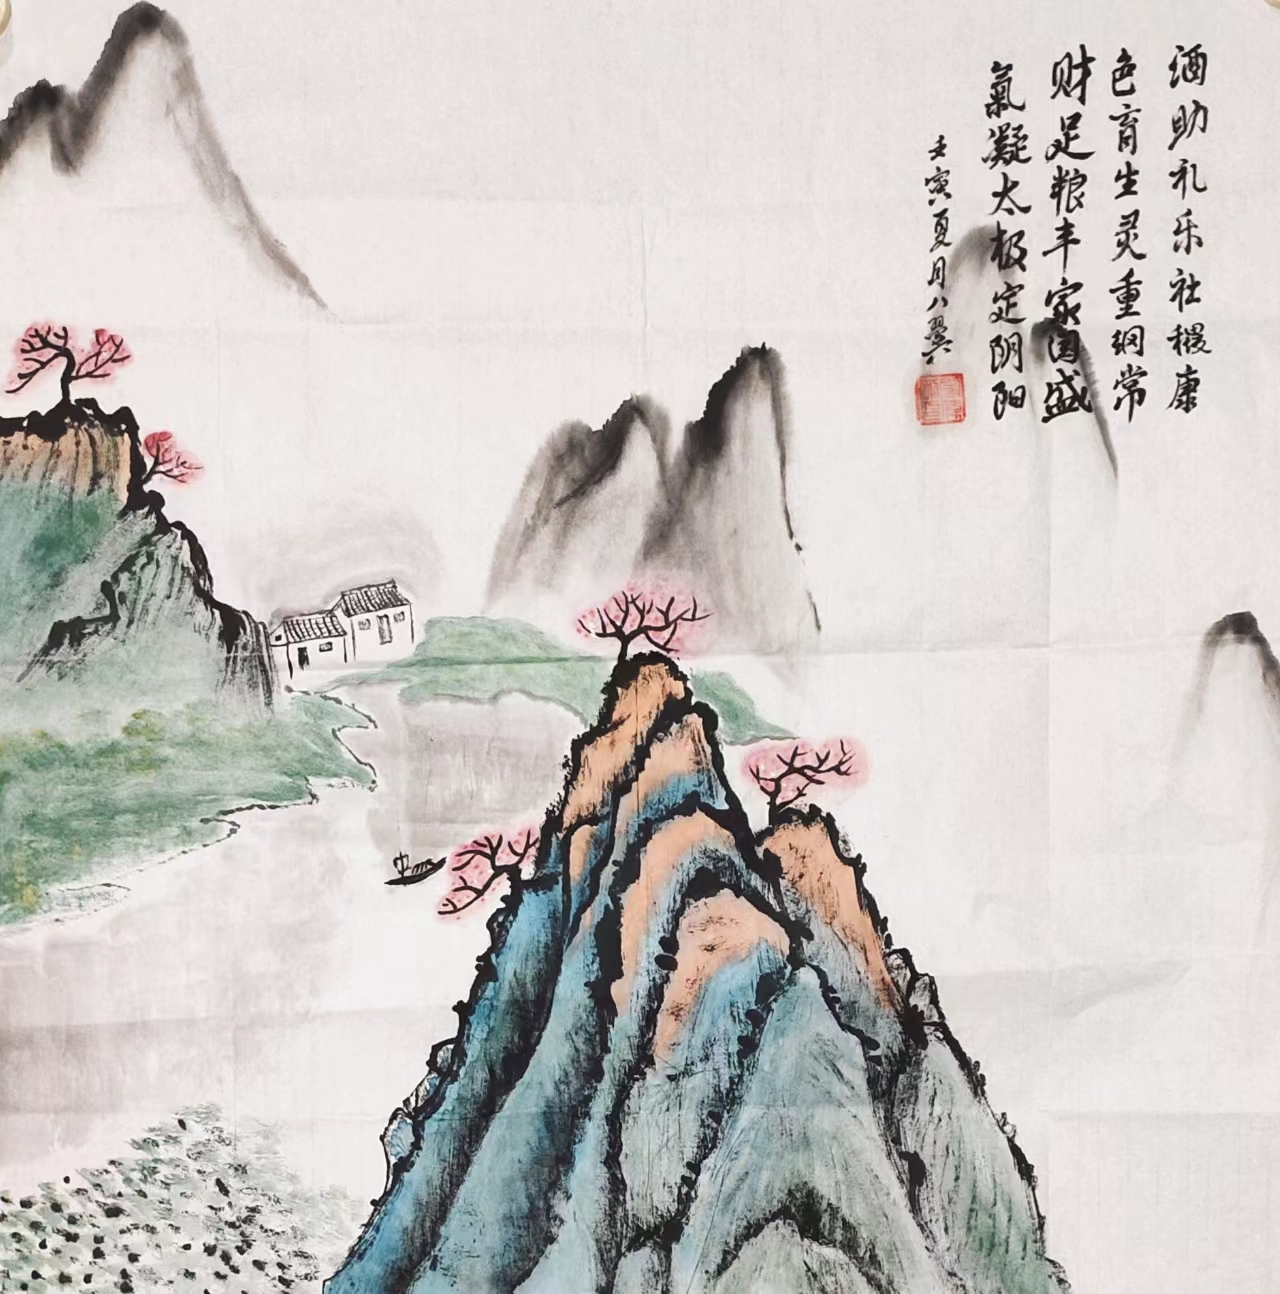 酒助礼乐社稷康
色育生灵重纲常
财足粮丰家国盛
氣凝太极定阴阳
壬寅夏月八翼